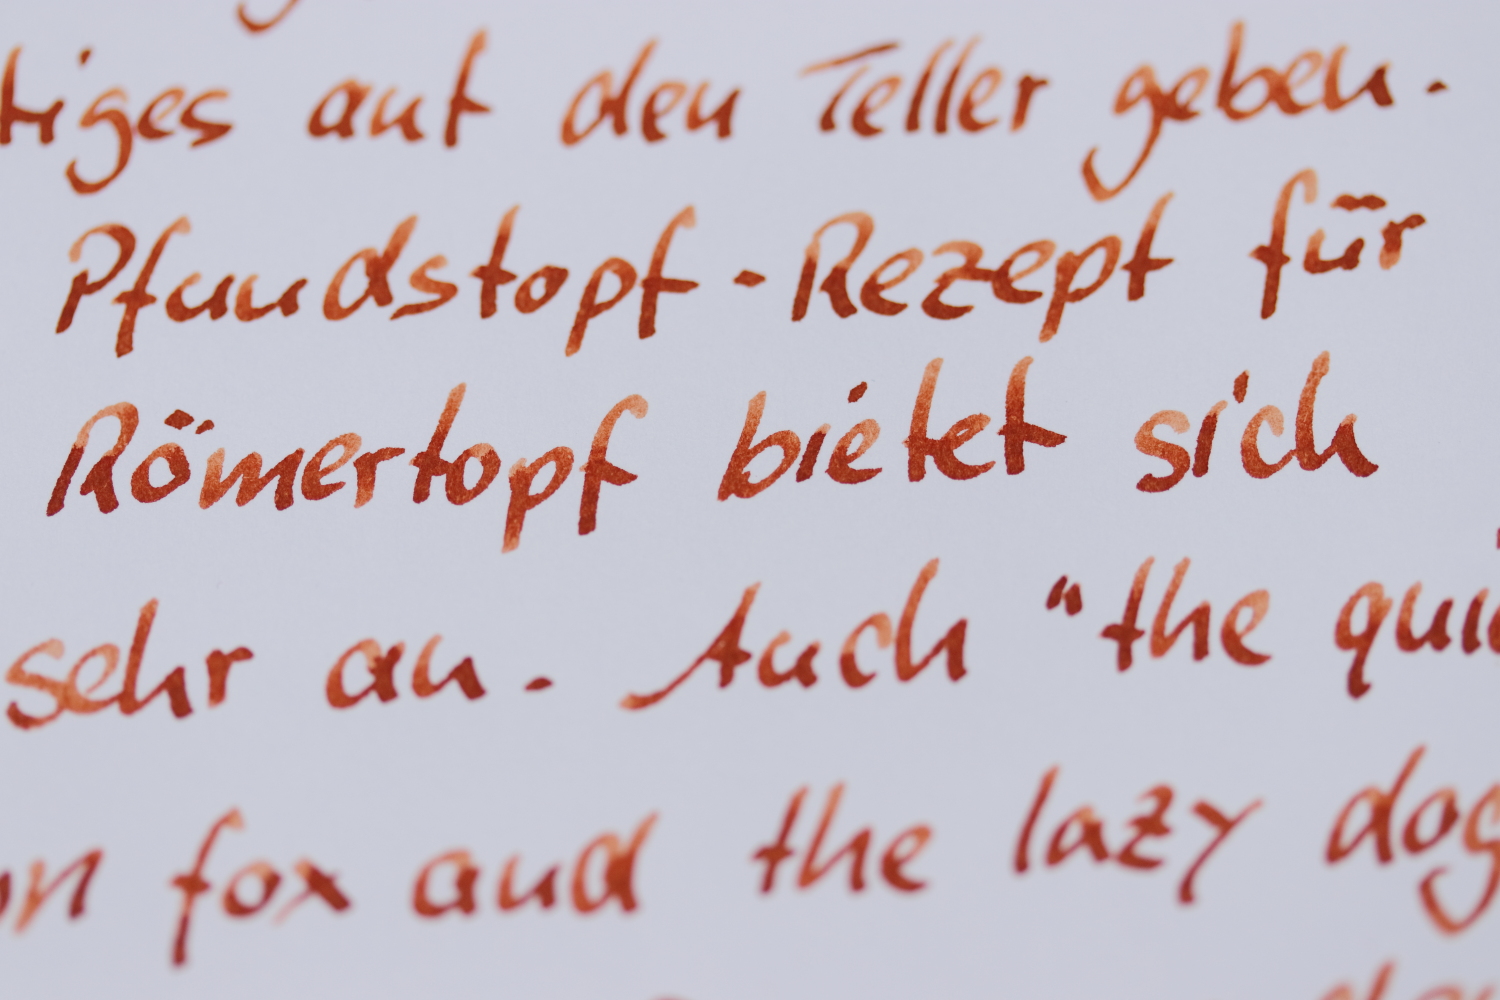 tiges auf den Teller geben.
Pfundstopf-Rezept für
Römertopf bietet sich
sehr an. Auch "the qui
n fox and the lazy dog